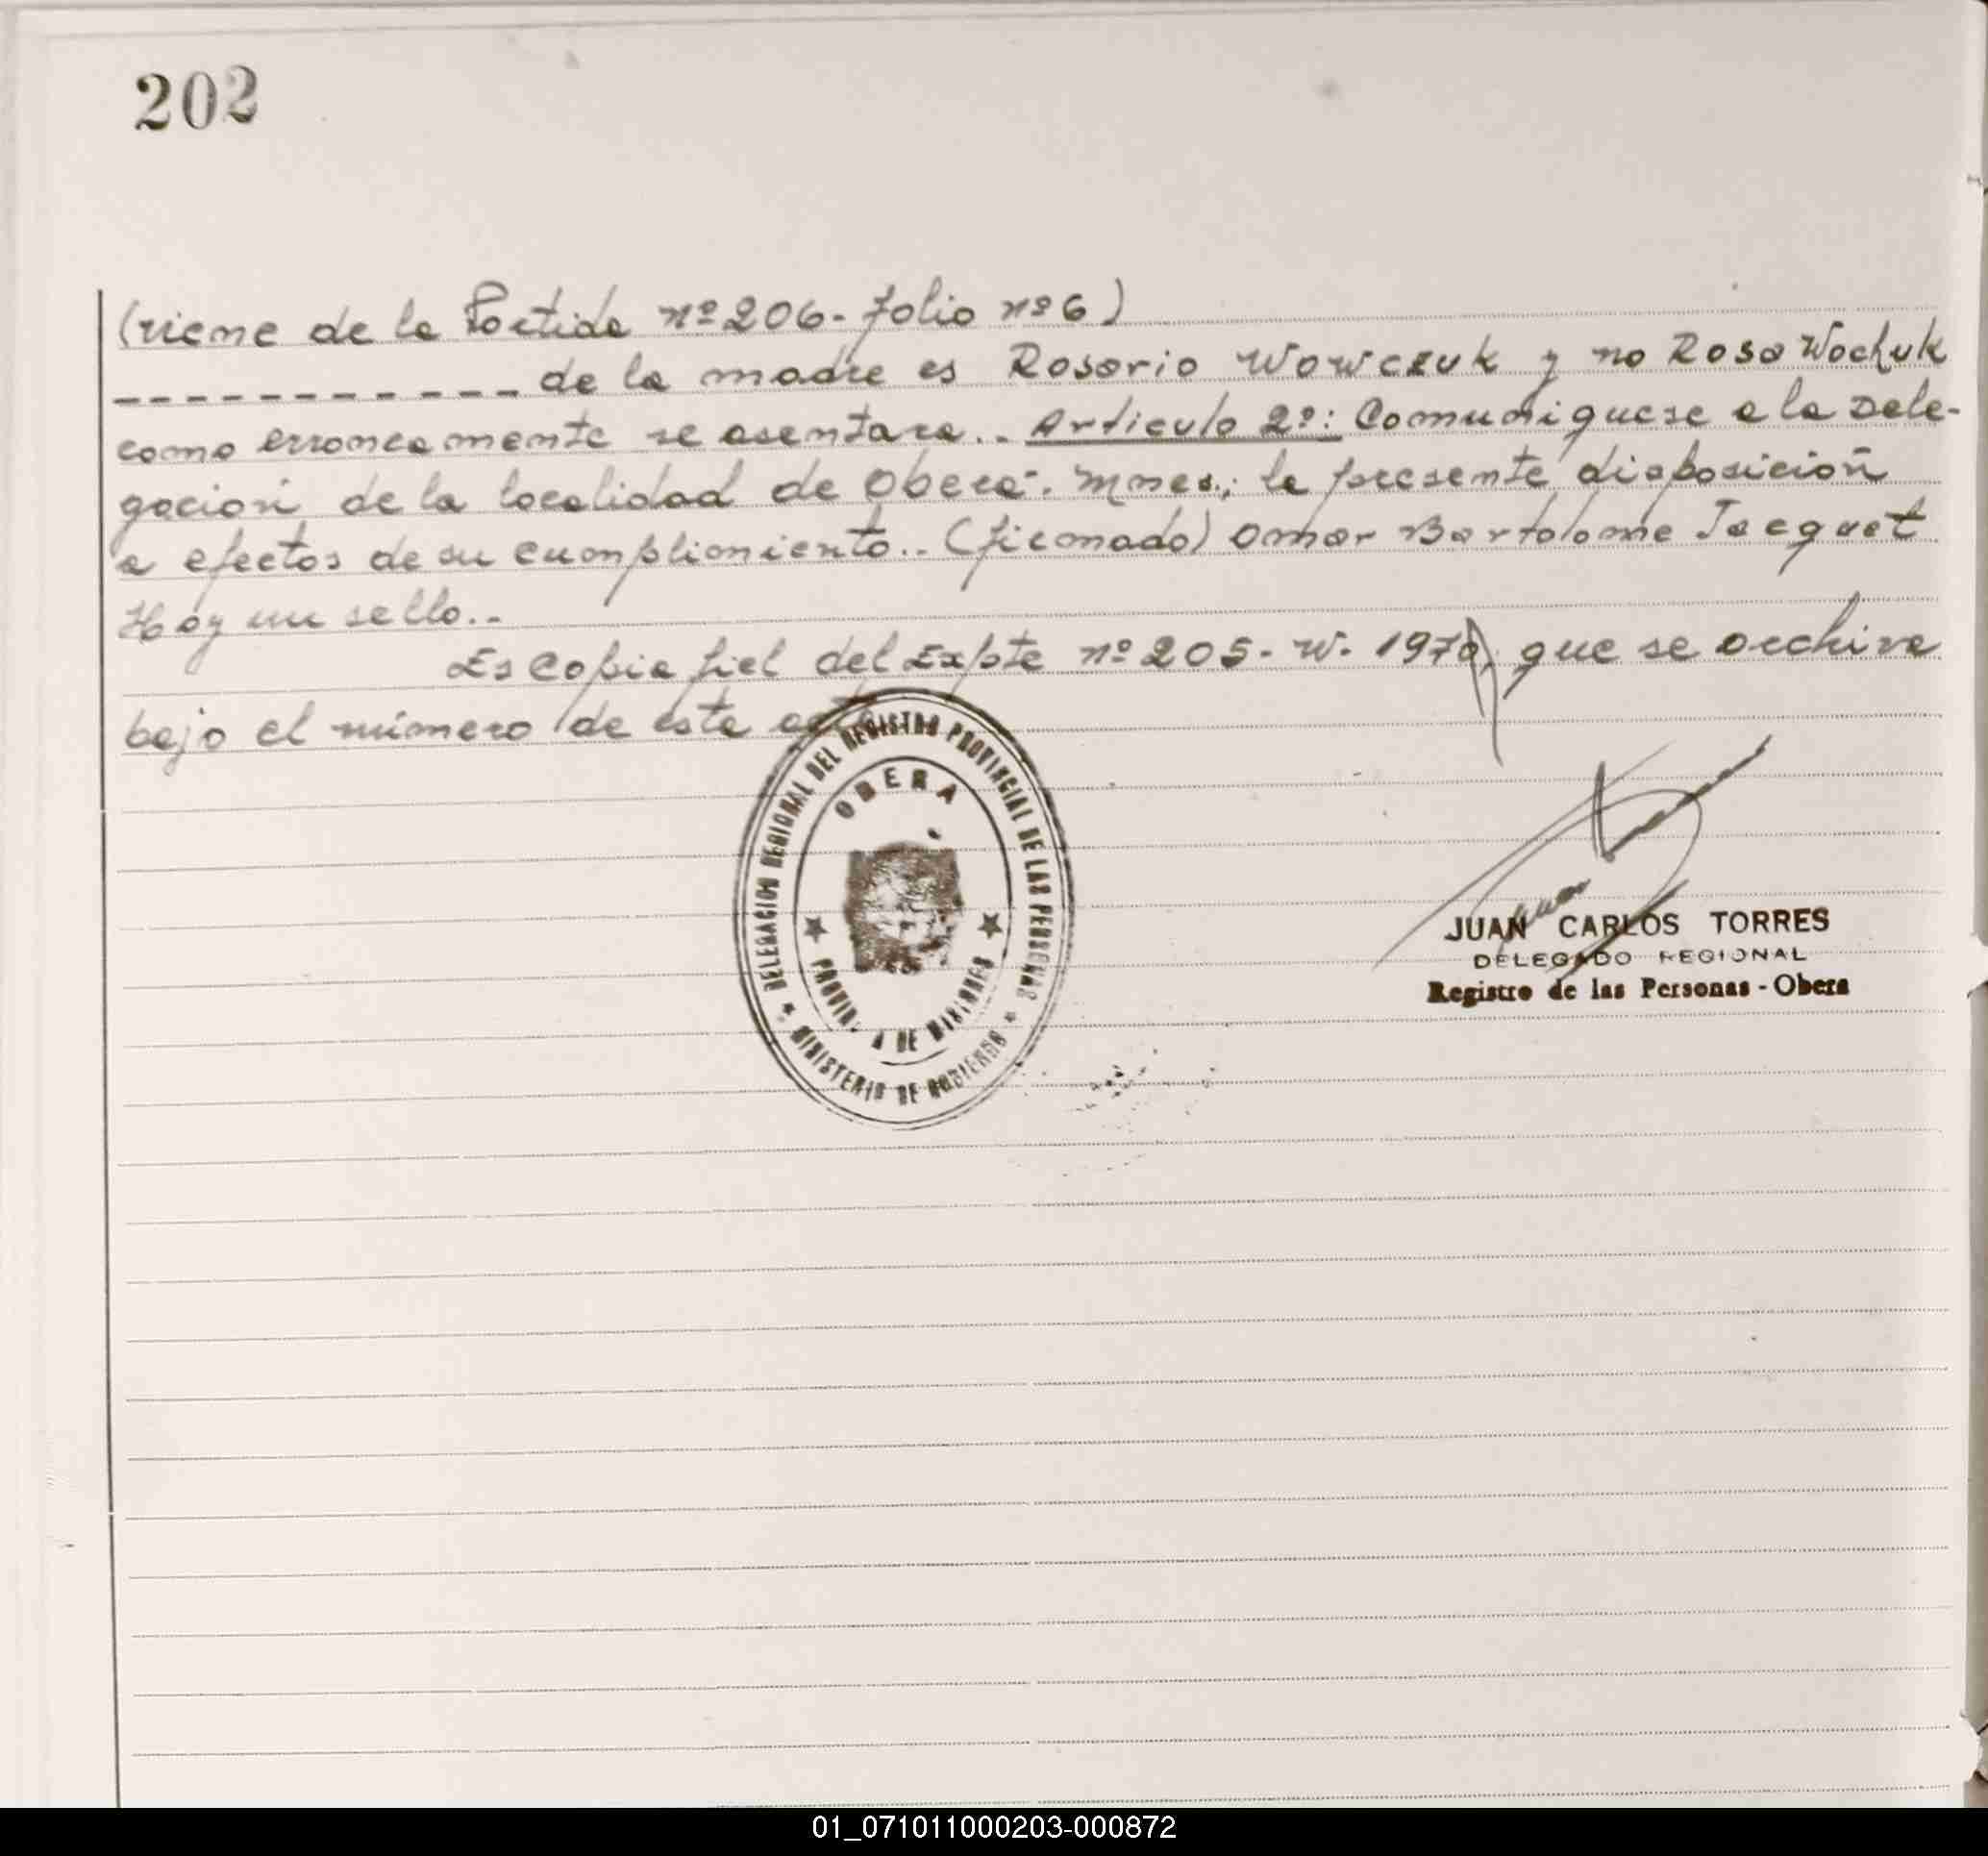 202
(viene de la Partida nº 206 - folio nº 6)
----------- de la madre es Rosario Wowczuk y no Rosa Wochuk
como erroneamente se asentara.. Articulo 2º: Comuniquese a la Dele-
gación de la localidad de Oberá. Mnes.; la presente disposición
a efectos de su cumplimiento.. (firmado) Omar Bartolome Jacquet
Hay un sello..
Es Copia fiel del Expte nº 205 - W. 1970, que se archiva
bajo el número de este acta
DELEGACION REGIONAL DEL REGISTRO PROVINCIAL DE LAS PERSONAS
OBERA
PROVINCIA DE MISIONES
MINISTERIO DE GOBIERNO
JUAN CARLOS TORRES
DELEGADO REGIONAL
Registro de las Personas - Obera
01_071011000203-000872